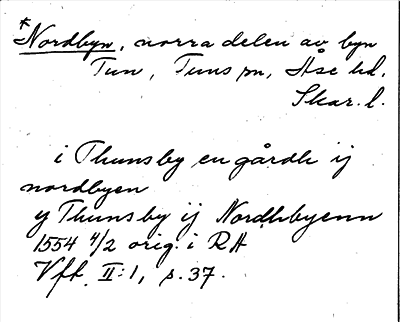 *Nordbyn, norra delen av byn
Tun, Tuns sn, Åse hd,
Skar. l.
i Thunsby en gårdh ij
nordbyen
y Thunsby ij Nordhbyenn
1554 4/2 orig. i RA
Vft. II:1, s. 37.